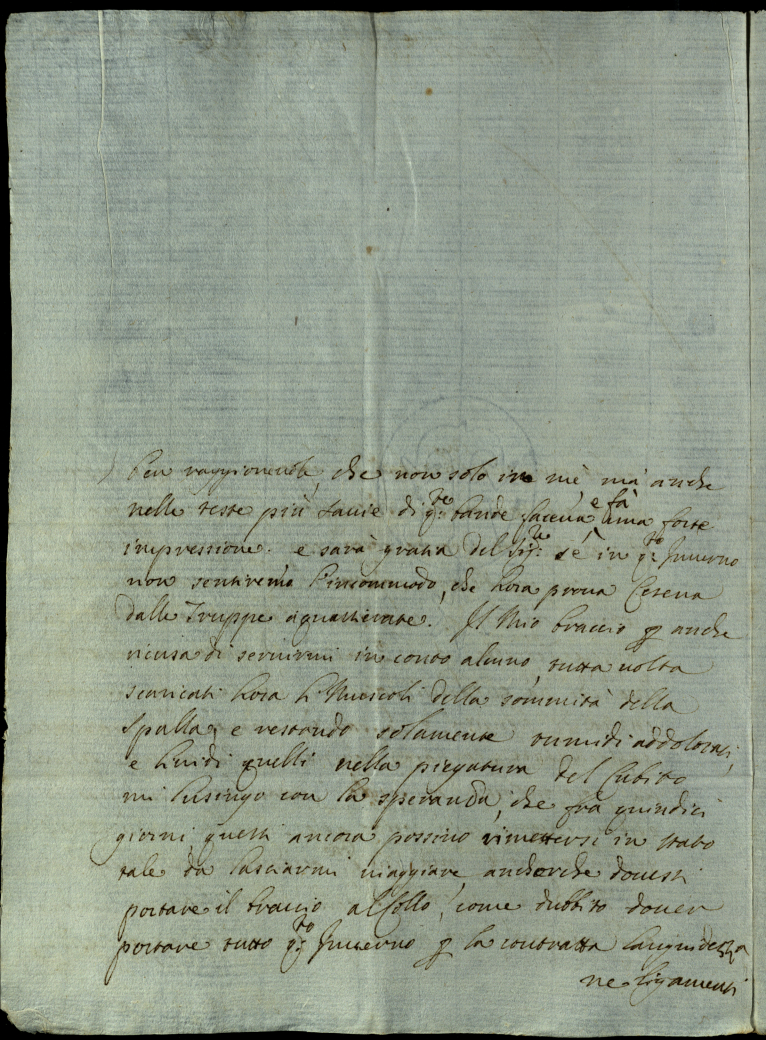 ben raggionevole, che non solo in mè mà anche
nelle teste più savie di q.te bande faceva e fà una forte
impressione. e sarà gratia del Sig.re sè in q.to Inverno
non sentiremo l'incommodo, che hora prova Cesena
dalle Truppe aquartierate. Il Mio braccio p anche
ricusa di servirmi in conto alcuno, tutta volta
scaricati hora li Muscoli della sommità della
spalla, e restando solamente tumidi addolorati,
e lividi quelli nella piegatura del Cubito
mi lusingo con la speranza, che frà quindici
giorni questi ancora possino rimettersi in stato
tale da lasciarmi viaggiare, anchorche dovessi
portare il braccio al Collo, come dubbito dover
portare tutto q.to Inverno p la contratta languidezza
ne ligamenti